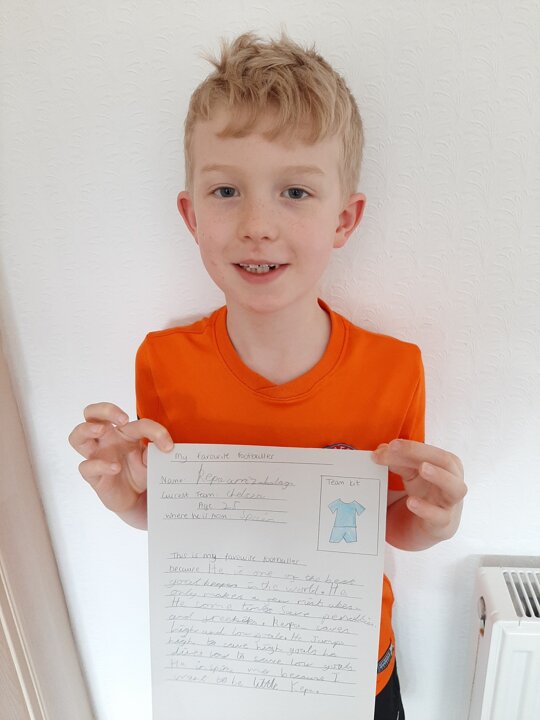 My favourite footballer
Name: Kepa arrizabalaga
Team kit
Current Team: chelsea
Age: 25
Where he is from Spain
This is my favourite footballer
because He is one of the best
goal keepers in the world. He
only makes a few mistakes.
He some times save penalties
and freekicks. Kepa saves
high and low goals. He jumps
high to save high goals he
dives low to save low goals
He inspires me because I
want to be little Kepa.